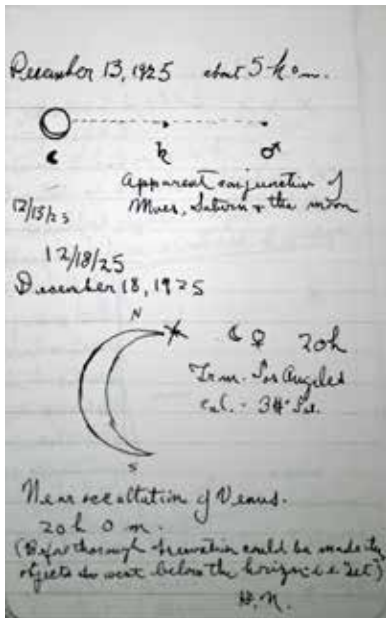 December 13, 1925 about 5 h 0 m.
☾ ♄ ♂
Apparent conjunction of
Mars, Saturn & the moon
12/13/25
12/18/25
December 18, 1925
N
☾ ♀ 20h
Los Angeles
S
Near occultation of Venus.
20 h 0 m.
(Before thorough observation could be made the
objects went below the horizon i.e. "set")